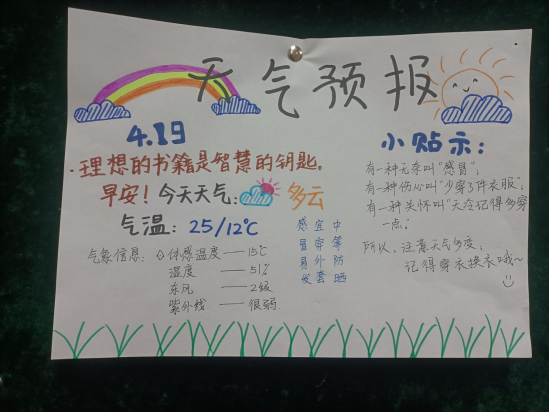 天气预报
4.19
·理想的书籍是智慧的钥匙。
早安！今天天气：多云
气温：25/12℃
气象信息：◇体感温度——15℃
湿度——51%
东风——2级
紫外线——很弱
感宜中
冒穿等
易外防
发套晒
小贴示：
有一种无奈叫“感冒”；
有一种伤心叫“少穿了件衣服”；
有一种关怀叫“天冷记得多穿
一点。”
所以，注意天气多变，
记得穿衣换衣哦~